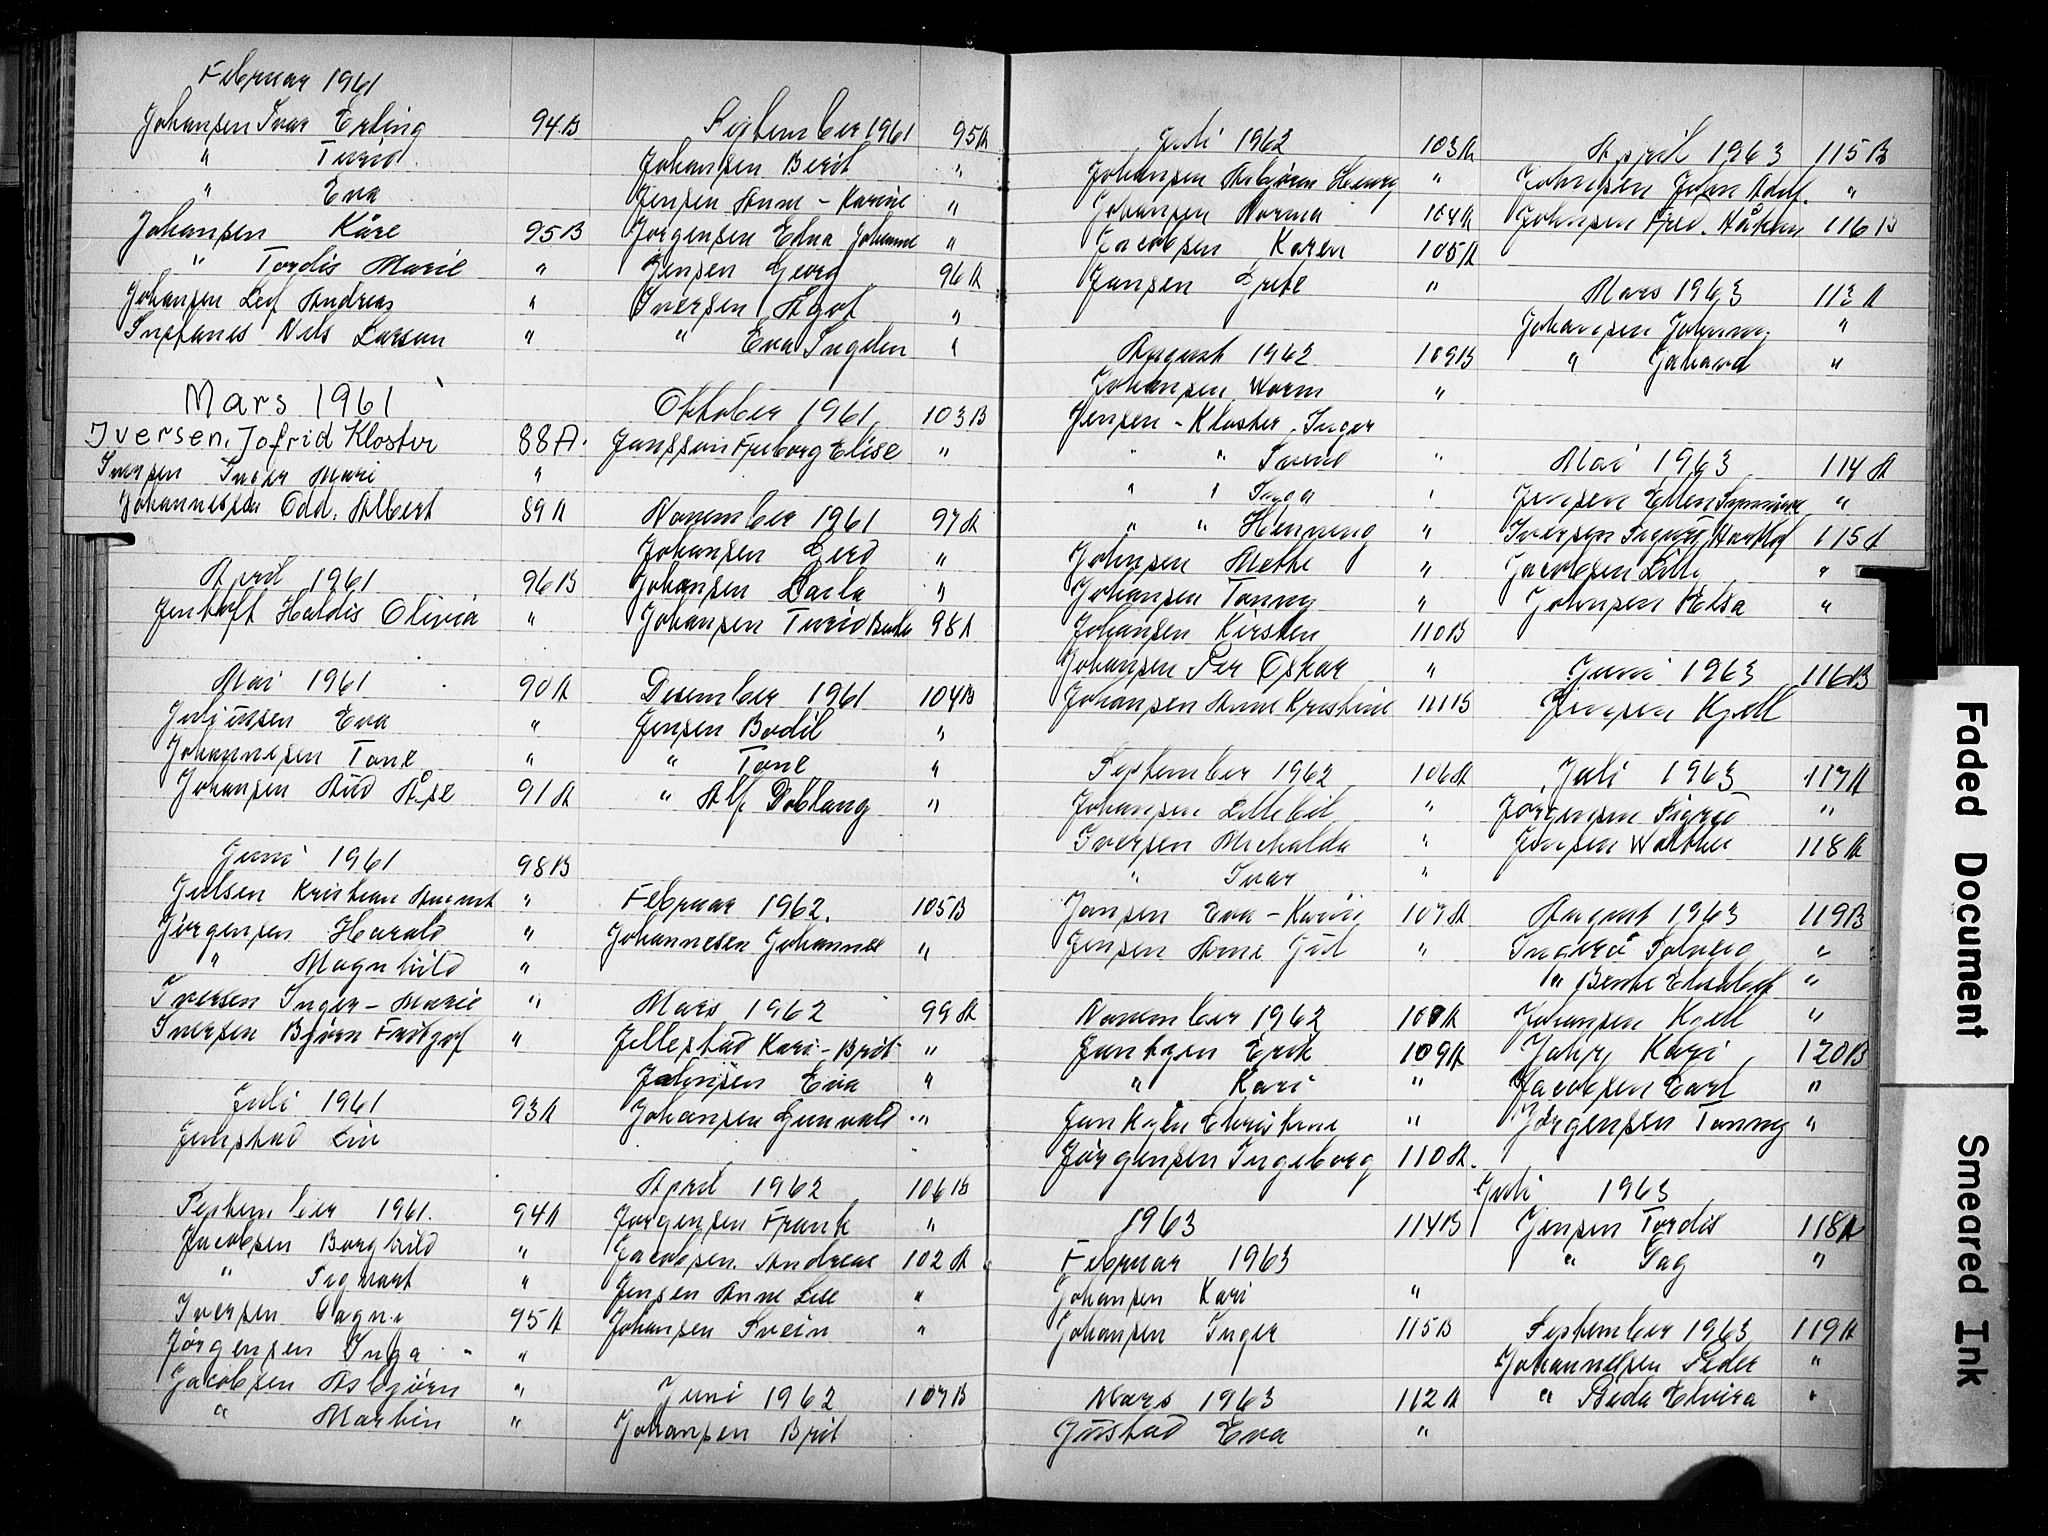 Februar 1961
Johansen Ivar Erling 94B
" Turid
" Eva
Johansen Kåre 95B
" Tordis Marie "
Johansen Leif Andreas "
Nils Larsen "
Mars 1961
Iversen, Jofrid Kloster 88A.
Iversen Inger Mari "
Johannessen Odd. Albert 89A
April 1961 96B
Jentoft Haldis Olivia "
Mai 1961 90A
Juliussen Eva "
Johannesen Tone "
Johansen Aud Åse 91A
Juni 1961 98B
Julsen Kristian August "
Jørgensen Harald "
" Magnhild "
Iversen Inger-Marie "
Iversen Bjørn Fridtjof "
Juli 1961 93A
Jenstad Liv
September 1961. 94A
Jacobsen Borghild "
" Sigmart "
Iversen Dagny 95A
Jørgensen Inga "
Jacobsen Asbjørn "
" Martin "
September 1961 95A
Johansen Berit "
Jensen Anne-Karine "
Jørgensen Edna Johanne "
Jensen Georg 96A
Iversen Ågot "
" Eva Ingelen "
Oktober 1961 103B
Jansson Freborg Elise "
November 1961 97A
Johansen Gerd "
Johansen Carla "
Johansen Turid Bente 98A
Desember 1961 104B
Jensen Bodil "
" Tone "
" Alf Doblang "
Februar 1962. 105B
Johannesen Johannes "
Mars 1962 99A
Jellestad Kari-Brit "
Johnsen Eva "
Johansen Gunvald "
April 1962 106B
Jørgensen Frank "
Jacobsen. Andreas 102A
Jensen Anne Lise "
Johansen Svein "
Juni 1962 107B
Johansen Brit
Juli 1962 103A
Johansen Asbjørn Henry "
Johansen Norma 104A
Jacobsen Karen 105A
Jansen Grete "
August 1962 109B
Johansen Worm "
Jensen-Kloster, Inger
" " Svend "
" " Inga "
" " Henning "
Johnsen Methe "
Johansen Tonny "
Johansen Kirsten 110B
Johansen Per Oskar "
Johansen Anne Kristine 111B
September 1962 106A
Johansen Lillebil "
Iversen Michalda "
" Ivar "
Jansen Eva-Karin 107A
Jensen Arne Juel "
November 1962 108A
Jantzen Erik 109A
" Kari "
Jantzen Christine "
Jørgensen Ingeborg 110A.
1963 114B
Februar 1963
Johansen Kari "
Johansen Inger 115B
Mars 1963 112A
Justad Eva "
April 1963 115B
Johnsen John Adolf. "
Johnsen Fred. Håkon 116B
Mars 1963 113A
Johansen Johnny "
" Johand "
Mai 1963 114A
Jensen Ellen Synnøve "
Iversen Ingvar Hartlof 115A
Jacobsen Lilli "
Johnsen Elsa "
Juni 1963 116B
Jensen Kjell
Juli 1963 117A
Jørgensen Sigrid "
Jensen Walther 118A
August 1963 119B
Ingerø Solveig "
" Bente Elisabet "
Johansen Kjell "
Jahr Kari 120B
Jacobsen Carl "
Jørgensen Tonny "
Juli 1963
Jensen Tordis 118A
" Dag "
September 1963 119A
Johannessen Peder "
" Beda Elvira "
Faded Document
Smeared Ink